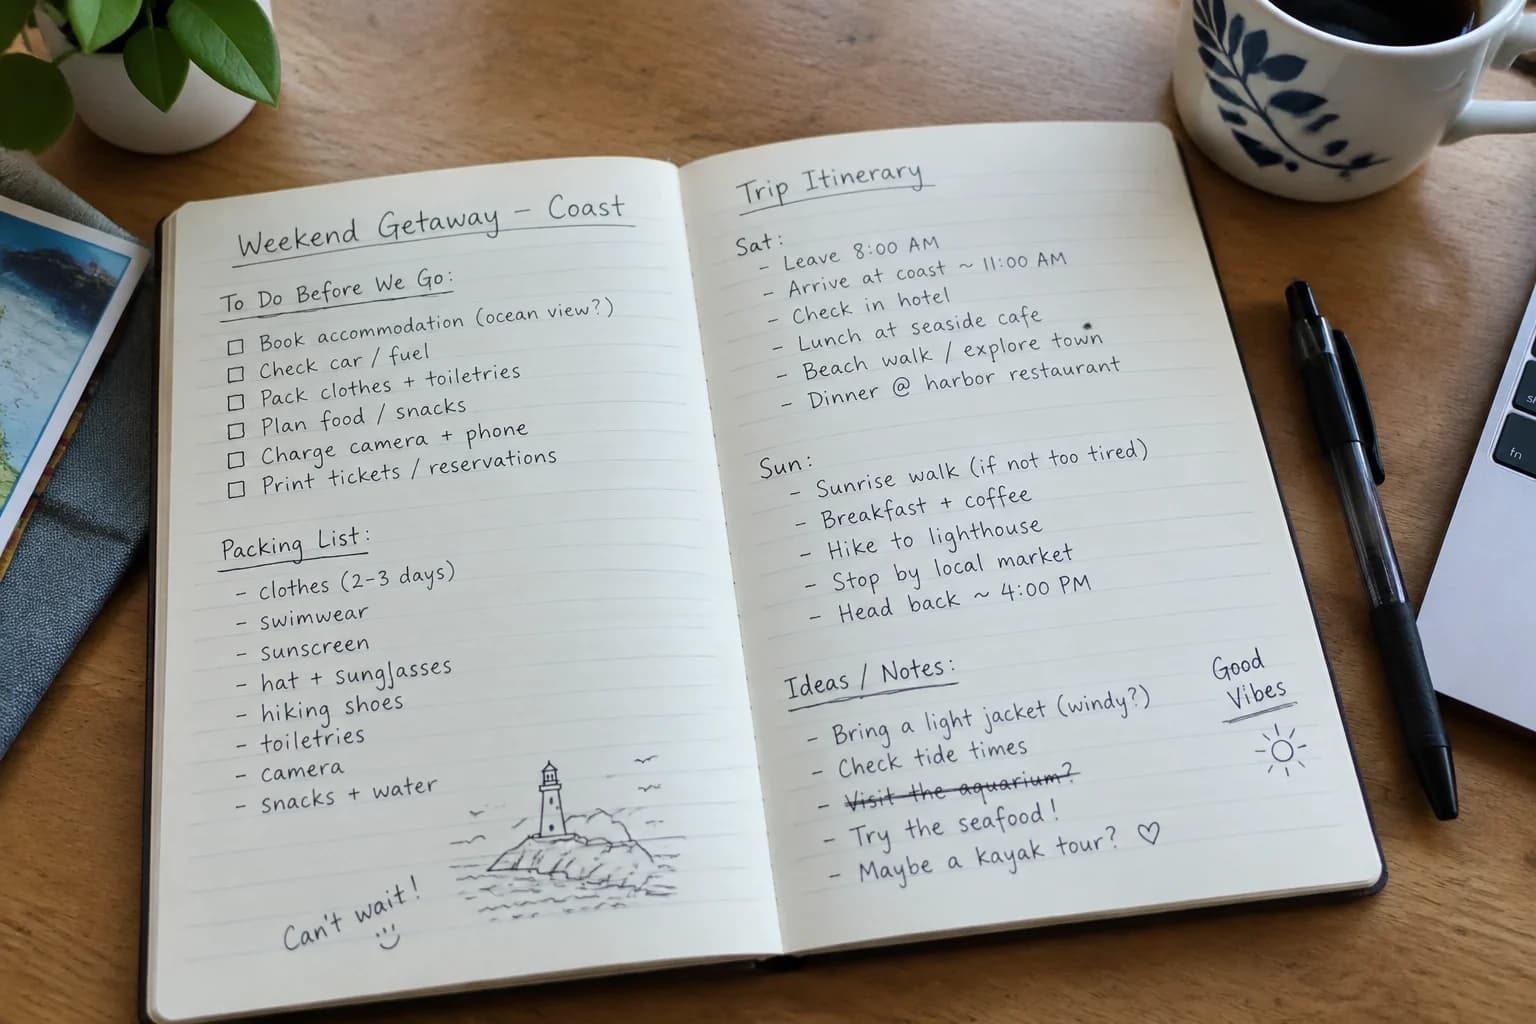 Weekend Getaway – Coast
To Do Before We Go:
☐ Book accommodation (ocean view?)
☐ Check car / fuel
☐ Pack clothes + toiletries
☐ Plan food / snacks
☐ Charge camera + phone
☐ Print tickets / reservations
Packing List:
- clothes (2-3 days)
- swimwear
- sunscreen
- hat + sunglasses
- hiking shoes
- toiletries
- camera
- snacks + water
Can't wait!
Trip Itinerary
Sat:
- Leave 8:00 AM
- Arrive at coast ~ 11:00 AM
- Check in hotel
- Lunch at seaside cafe
- Beach walk / explore town
- Dinner @ harbor restaurant
Sun:
- Sunrise walk (if not too tired)
- Breakfast + coffee
- Hike to lighthouse
- Stop by local market
- Head back ~ 4:00 PM
Ideas / Notes:
- Bring a light jacket (windy?)
- Check tide times
- Visit the aquarium?
- Try the seafood!
- Maybe a kayak tour? ♡
Good
Vibes
fn